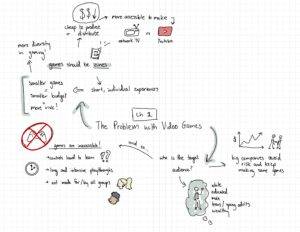 $$↓
more accessible to make
cheap to produce
+ distribute
network TV
YouTube
more diversity
in gaming?
games should be zines
smaller games
smaller budget
more risk!
short, individual experiences
Ch 1
The Problem with Video Games
games are inaccessible!
controls hard to learn
long and intensive playthroughs
not made for/by all groups
who is the target
audience?
big companies avoid
risk and keep
making same games
white
educated
male
teens/young adults
wealthy